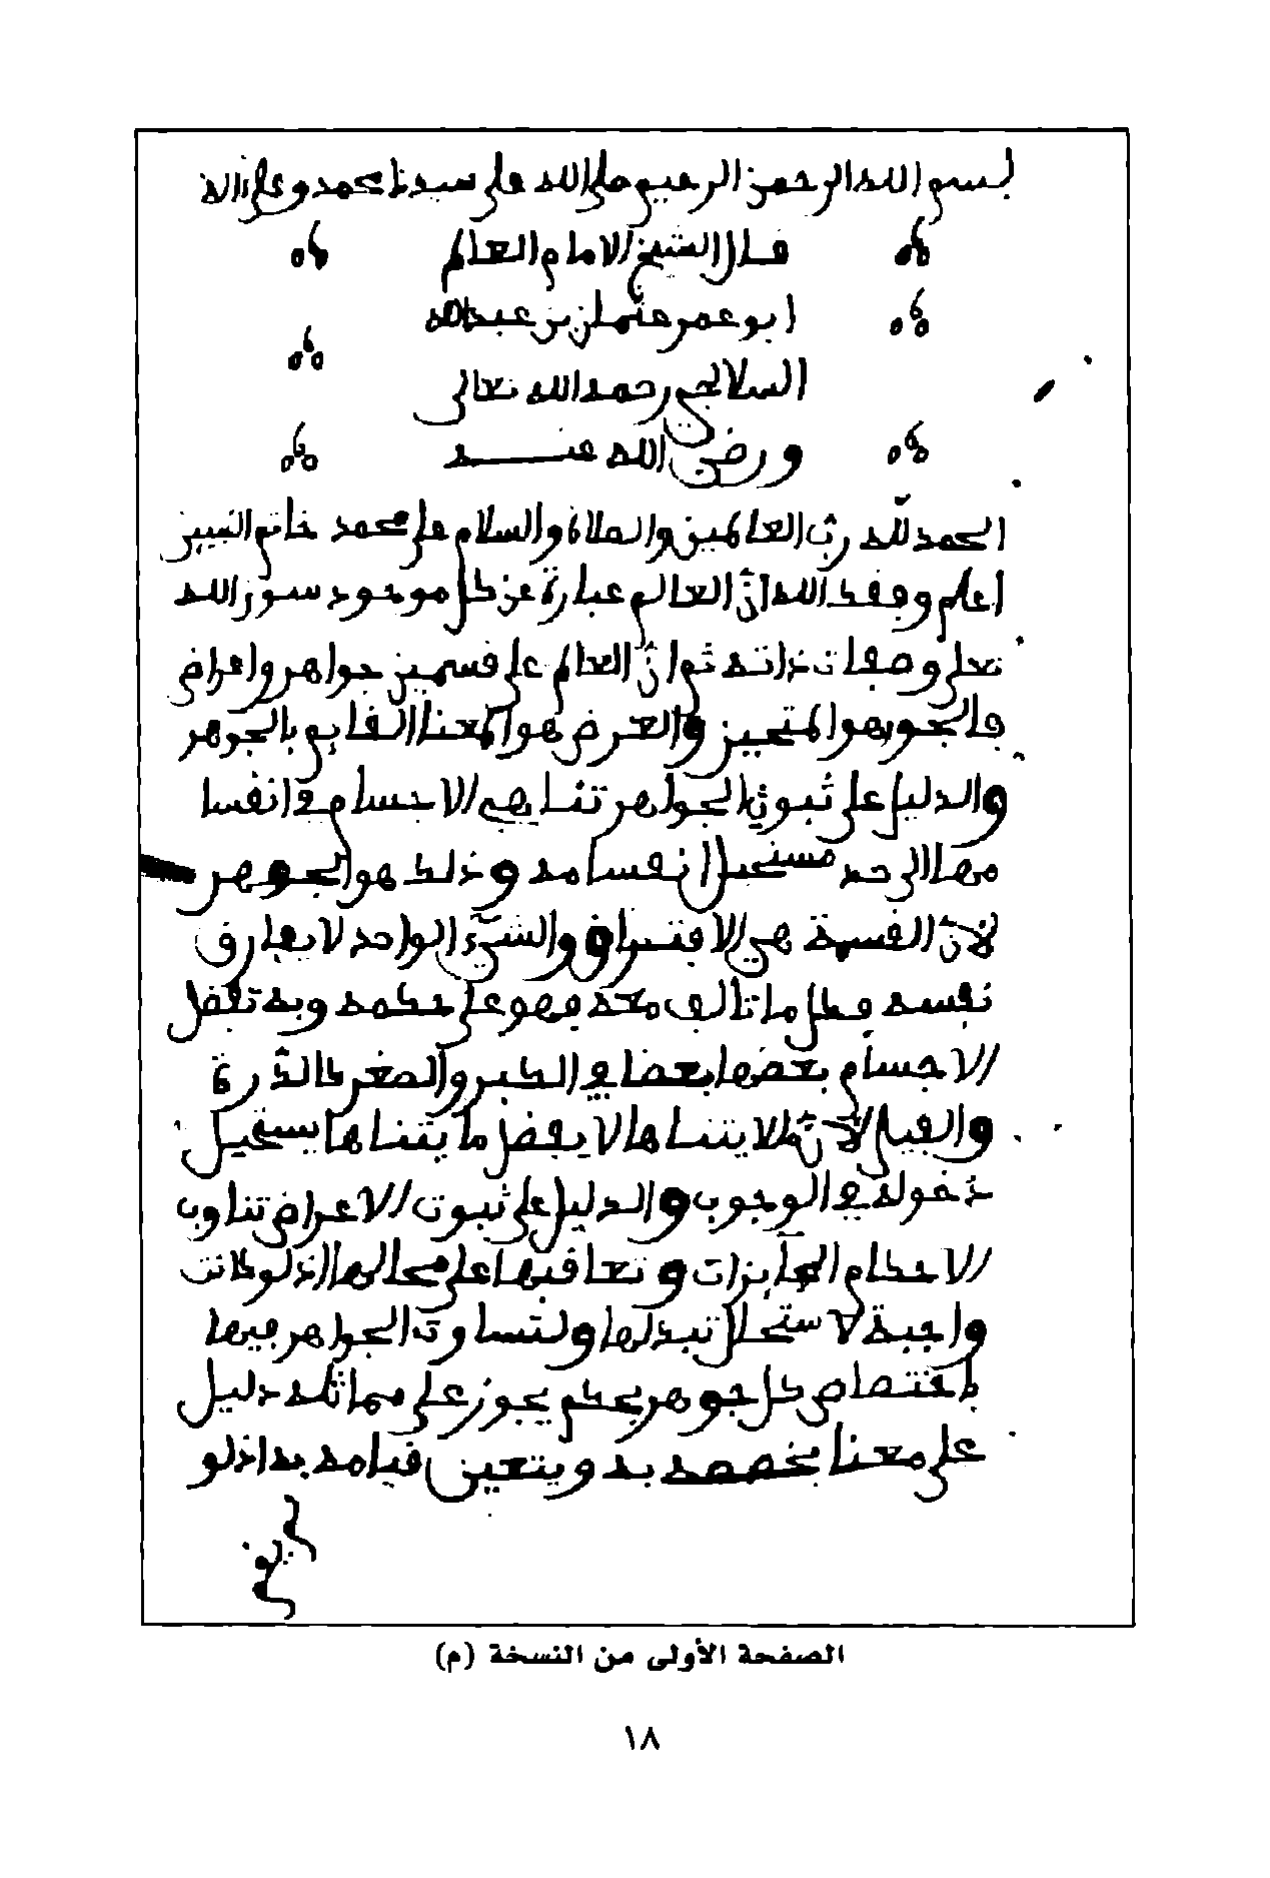 بسم الله الرحمن الرحيم صلى الله على سيدنا محمد وعلى ءاله
قال الشيخ الامام العالم
ابو عمر عثمان بن عبد الله
السلالجي رحمه الله تعالى
ورضي الله عنه
الحمد لله ربّ العالمين والصلاة والسلام على محمد خاتم النبيين
اعلم وفقك الله أنّ العالم عبارة عن كل موجود سوى الله
تعلى وصفات ذاته ثم انّ العالم على قسمين جواهر واعراض
فالجوهر هو المتحيز والعرض هو المعنا القايم بالجوهر
والدليل على ثبوت الجواهر تناهي الاجسام في انقسا
مها الى حد مستحيل انقسامه وذلك هو الجوهر
لأنّ القسمة هي الافتراق والشيء الواحد لا يفارق
نفسه وكل ما تألف معه فهو على حكمه وبه تفضل
الاجسام بعضها بعضا في الكبر والصغر كالذّرة
والفيل لأنّ ما لا يتناها لا يفضل ما يتناها يستحيل
دخوله في الوجوب والدليل على ثبوت الاعراض تناوب
الاحكام الجآيزات وتعاقبها على محالها اذ لو كانت
واجبة لاستحال تبدلها ولتساوت الجواهر فيها
باختصاص كل جوهر بحكم يجوز على مماثله دليل
على معنا يخصصه به ويتعين قيامه به اذ لو
الصفحة الأولى من النسخة (م)
١٨